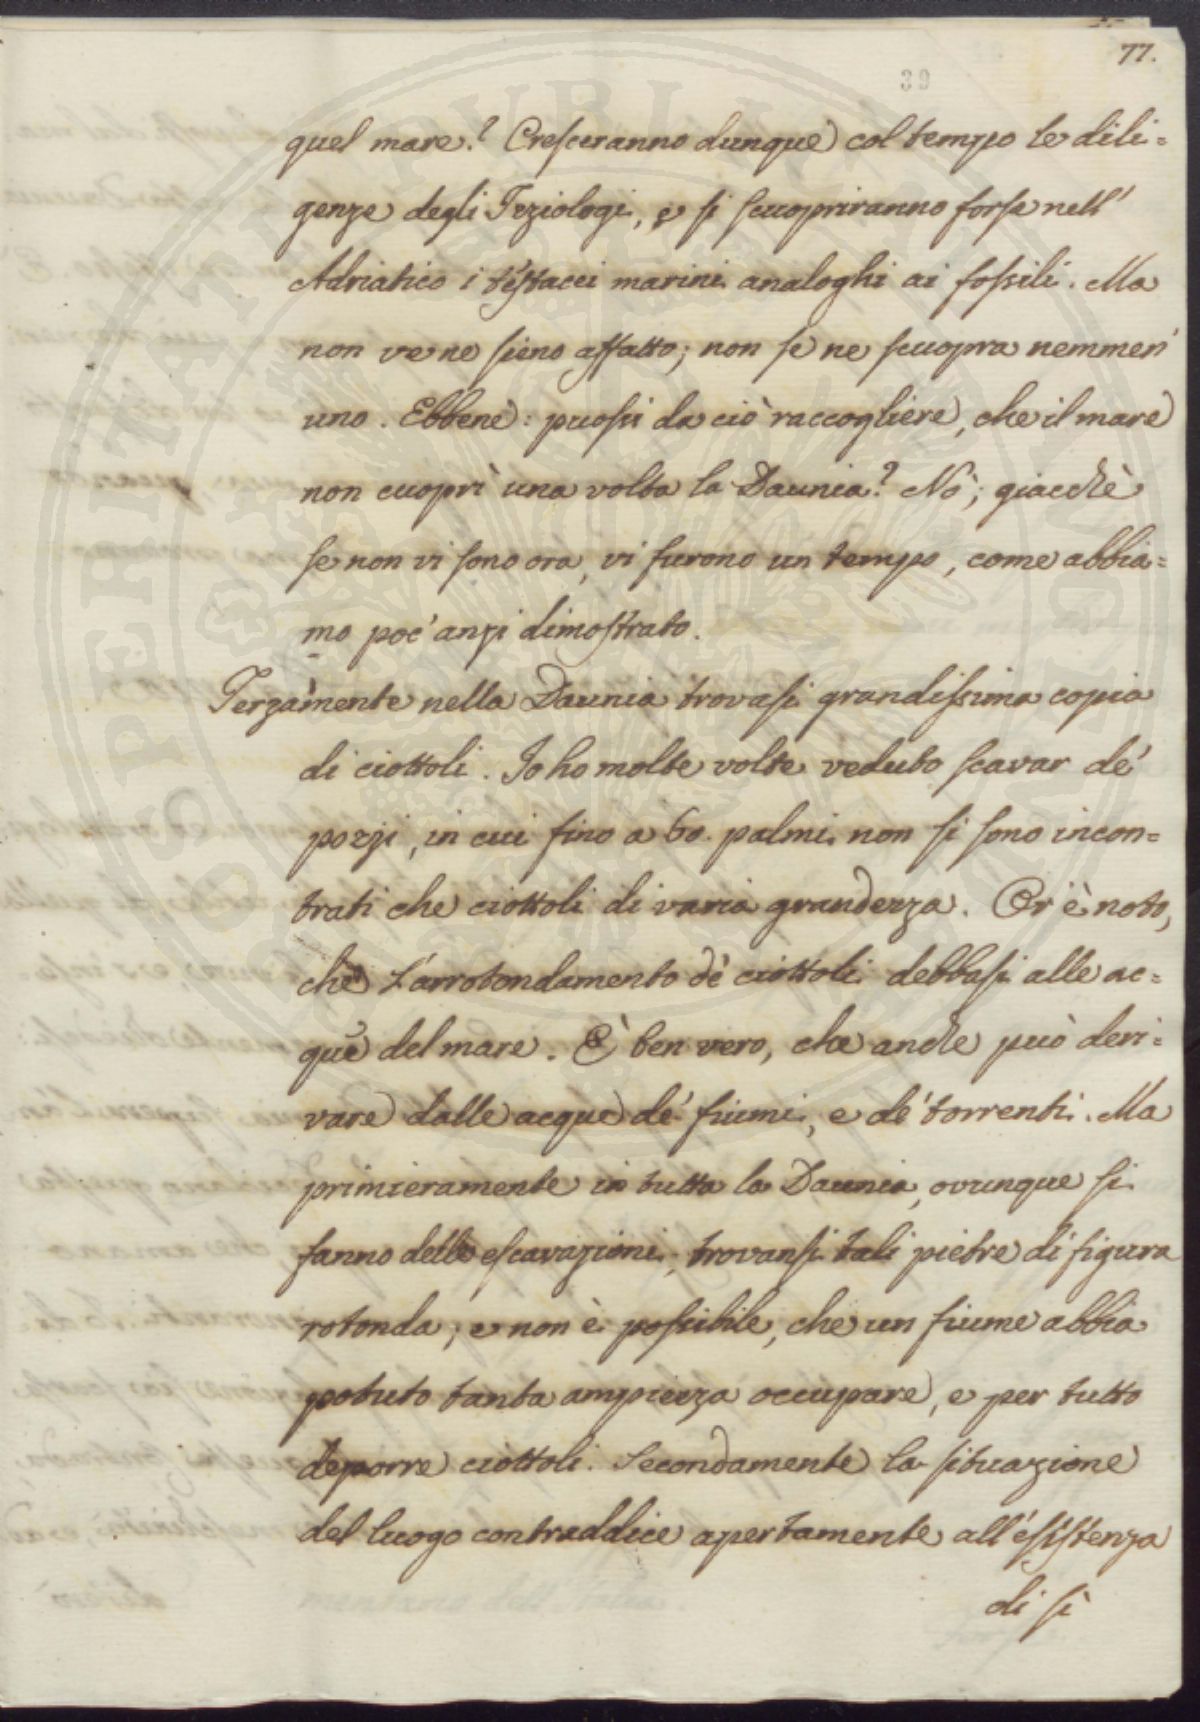 77.
39
quel mare? Cresceranno dunque col tempo le dili=
genze degli Tiziologi, e si scuopriranno forse nell'
Adriatico i testacei marini analoghi ai fossili. Ma
non ve ne sieno affatto; non se ne scuopra nemmen'
uno. Ebbene: puossi da ciò raccogliere, che il mare
non cuoprì una volta la Daunia? Nò; giacchè
se non vi sono ora, vi furono un tempo, come abbia=
mo poc'anzi dimostrato.
Terzamente nella Daunia trovasi grandissima copia
di ciottoli. Io ho molte volte veduto scavar de'
pozzi, in cui fino a 60. palmi non si sono incon=
trati che ciottoli di varia grandezza. Or è noto,
che l'arrotondamento de' ciottoli debbasi alle ac=
que del mare. È ben vero, che anche può deri=
vare dalle acque de' fiumi, e de' torrenti. Ma
primieramente in tutta la Daunia, ovunque si
fanno delle escavazioni, trovansi tali pietre di figura
rotonda; e non è possibile, che un fiume abbia
potuto tanta ampiezza occupare, e per tutto
deporre ciottoli. Secondamente la situazione
del luogo contraddice apertamente all'esistenza
di sì